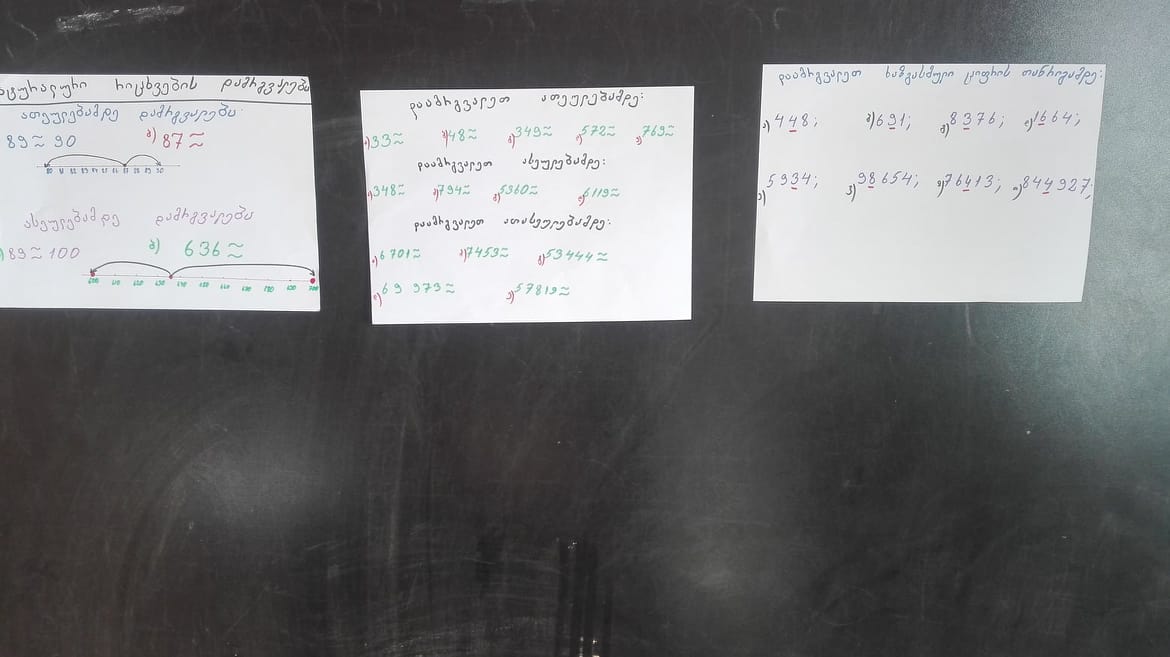 ატურალური რიცხვების დამრგვალება
ათეულებამდე დამრგვალება
89≈90 ბ) 87≈
ასეულებამდე დამრგვალება
) 89≈100 ბ) 636≈
600 700
დაამრგვალეთ ათეულებამდე:
ა) 33≈ ბ) 48≈ გ) 349≈ დ) 572≈ ე) 769≈
დაამრგვალეთ ასეულებამდე:
ა) 348≈ ბ) 794≈ გ) 5360≈ დ) 6119≈
დაამრგვალეთ ათასეულებამდე:
ა) 6 701≈ ბ) 7453≈ გ) 53444≈
დ) 69 973≈ ე) 57819≈
დაამრგვალეთ ხაზგასმული ციფრის თანრიგამდე:
ა) 448; ბ) 691; გ) 8376; დ) 1664;
ე) 5934; ვ) 98654; ზ) 76413; თ) 844927;